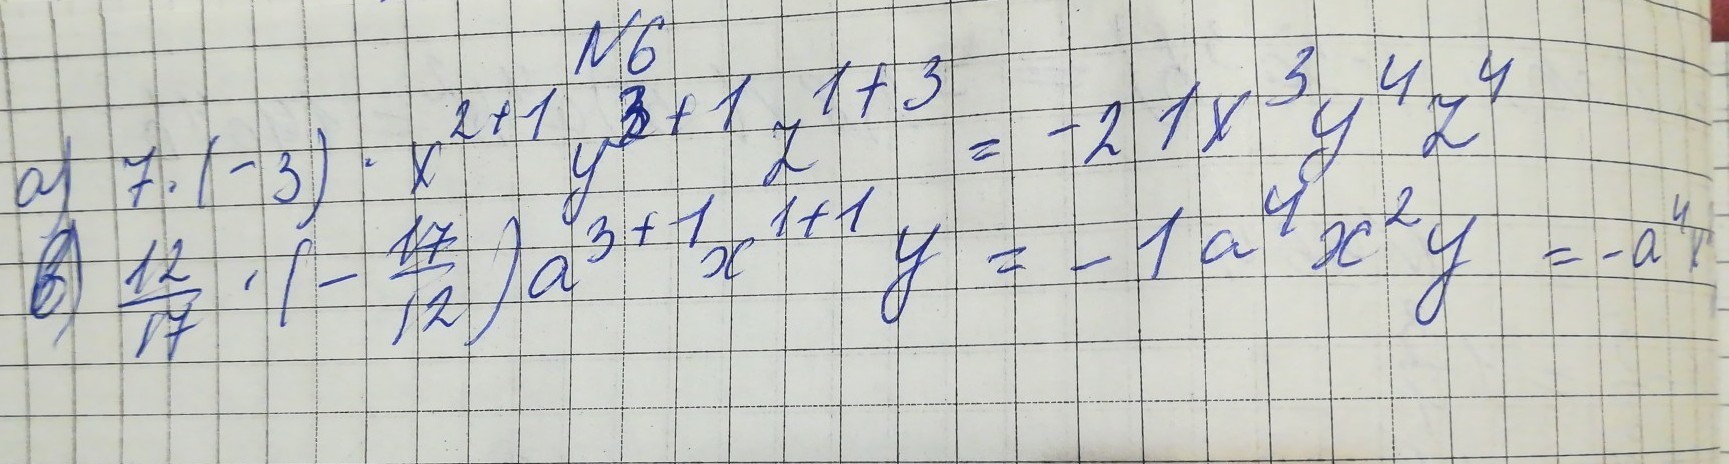 N6
а) 7·(-3)·x²⁺¹ y³⁺¹ z¹⁺³ = -21x³y⁴z⁴
б) 12/17 · (- 17/12) a³⁺¹ x¹⁺¹ y = -1a⁴x²y = -a⁴x